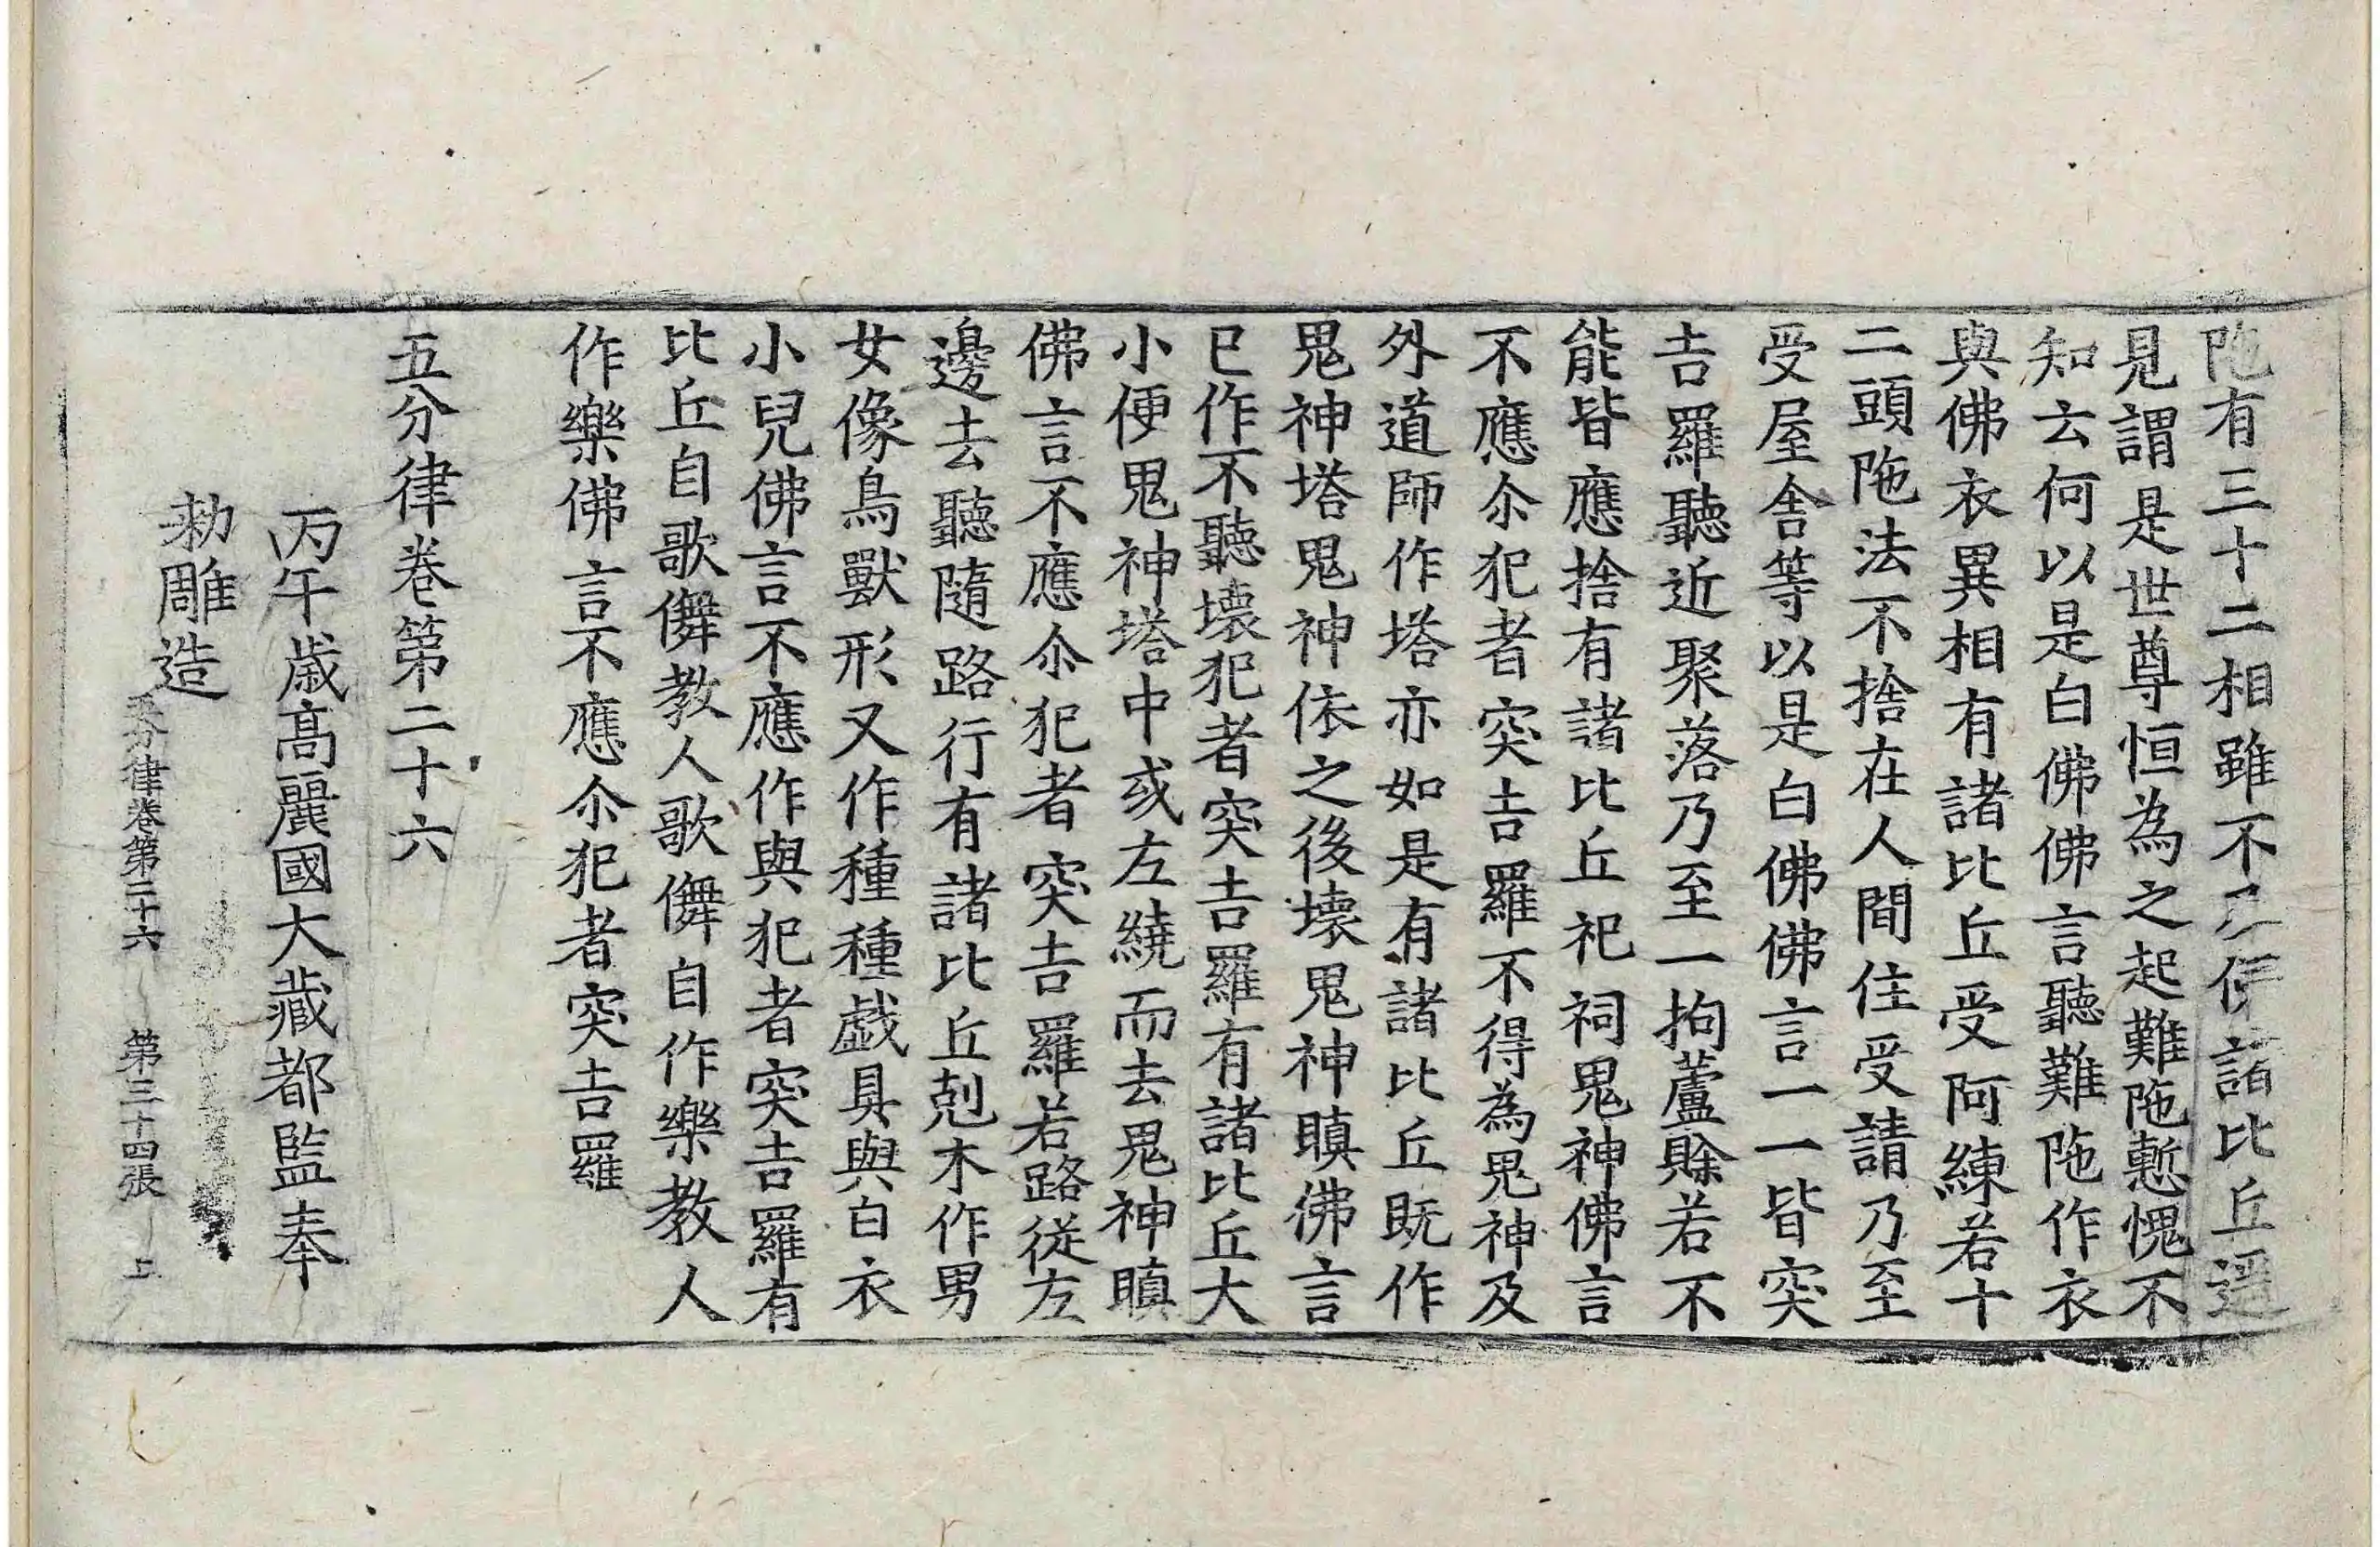 陁有三十二相雖不及佛諸比丘遥
見謂是世尊恒為之起難陁慙愧不
知云何以是白佛佛言聽難陁作衣
與佛衣異相有諸比丘受阿練若十
二頭陁法不捨在人間住受請乃至
受屋舍等以是白佛佛言一一皆突
吉羅聽近聚落乃至一拘盧賖若不
能皆應捨有諸比丘祀祠鬼神佛言
不應尒犯者突吉羅不得為鬼神及
外道師作塔亦如是有諸比丘既作
鬼神塔鬼神依之後壞鬼神瞋佛言
已作不聽壞犯者突吉羅有諸比丘大
小便鬼神塔中或左繞而去鬼神瞋
佛言不應尒犯者突吉羅若路從左
邊去聽隨路行有諸比丘剋木作男
女像鳥獸形又作種種戱具與白衣
小兒佛言不應作與犯者突吉羅有
比丘自歌儛教人歌儛自作樂教人
作樂佛言不應尒犯者突吉羅
五分律卷第二十六
丙午歲高麗國大藏都監奉
勑雕造
五分律卷第二十六 第三十四張